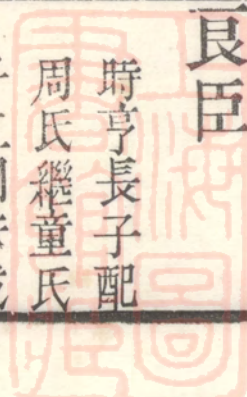 良臣
時亨長子配
周氏繼童氏